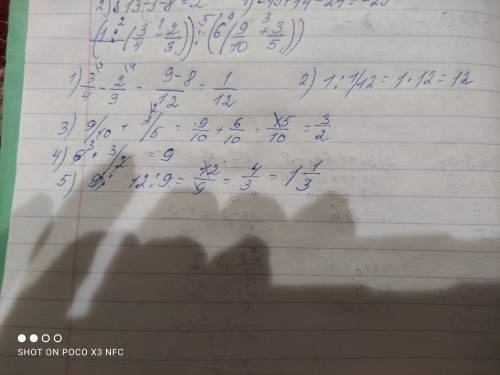 (1 : (3/4 - 2/3)) : (6 (9/10 + 3/5))
1) 3/4 - 2/3 = 9-8/12 = 1/12 2) 1 : 1/12 = 1 · 12 = 12
3) 9/10 + 3/5 = 9/10 + 6/10 = 15/10 = 3/2
4) 6 · 3/2 = 9
5) 12 : 9 = 12/9 = 4/3 = 1 1/3
SHOT ON POCO X3 NFC